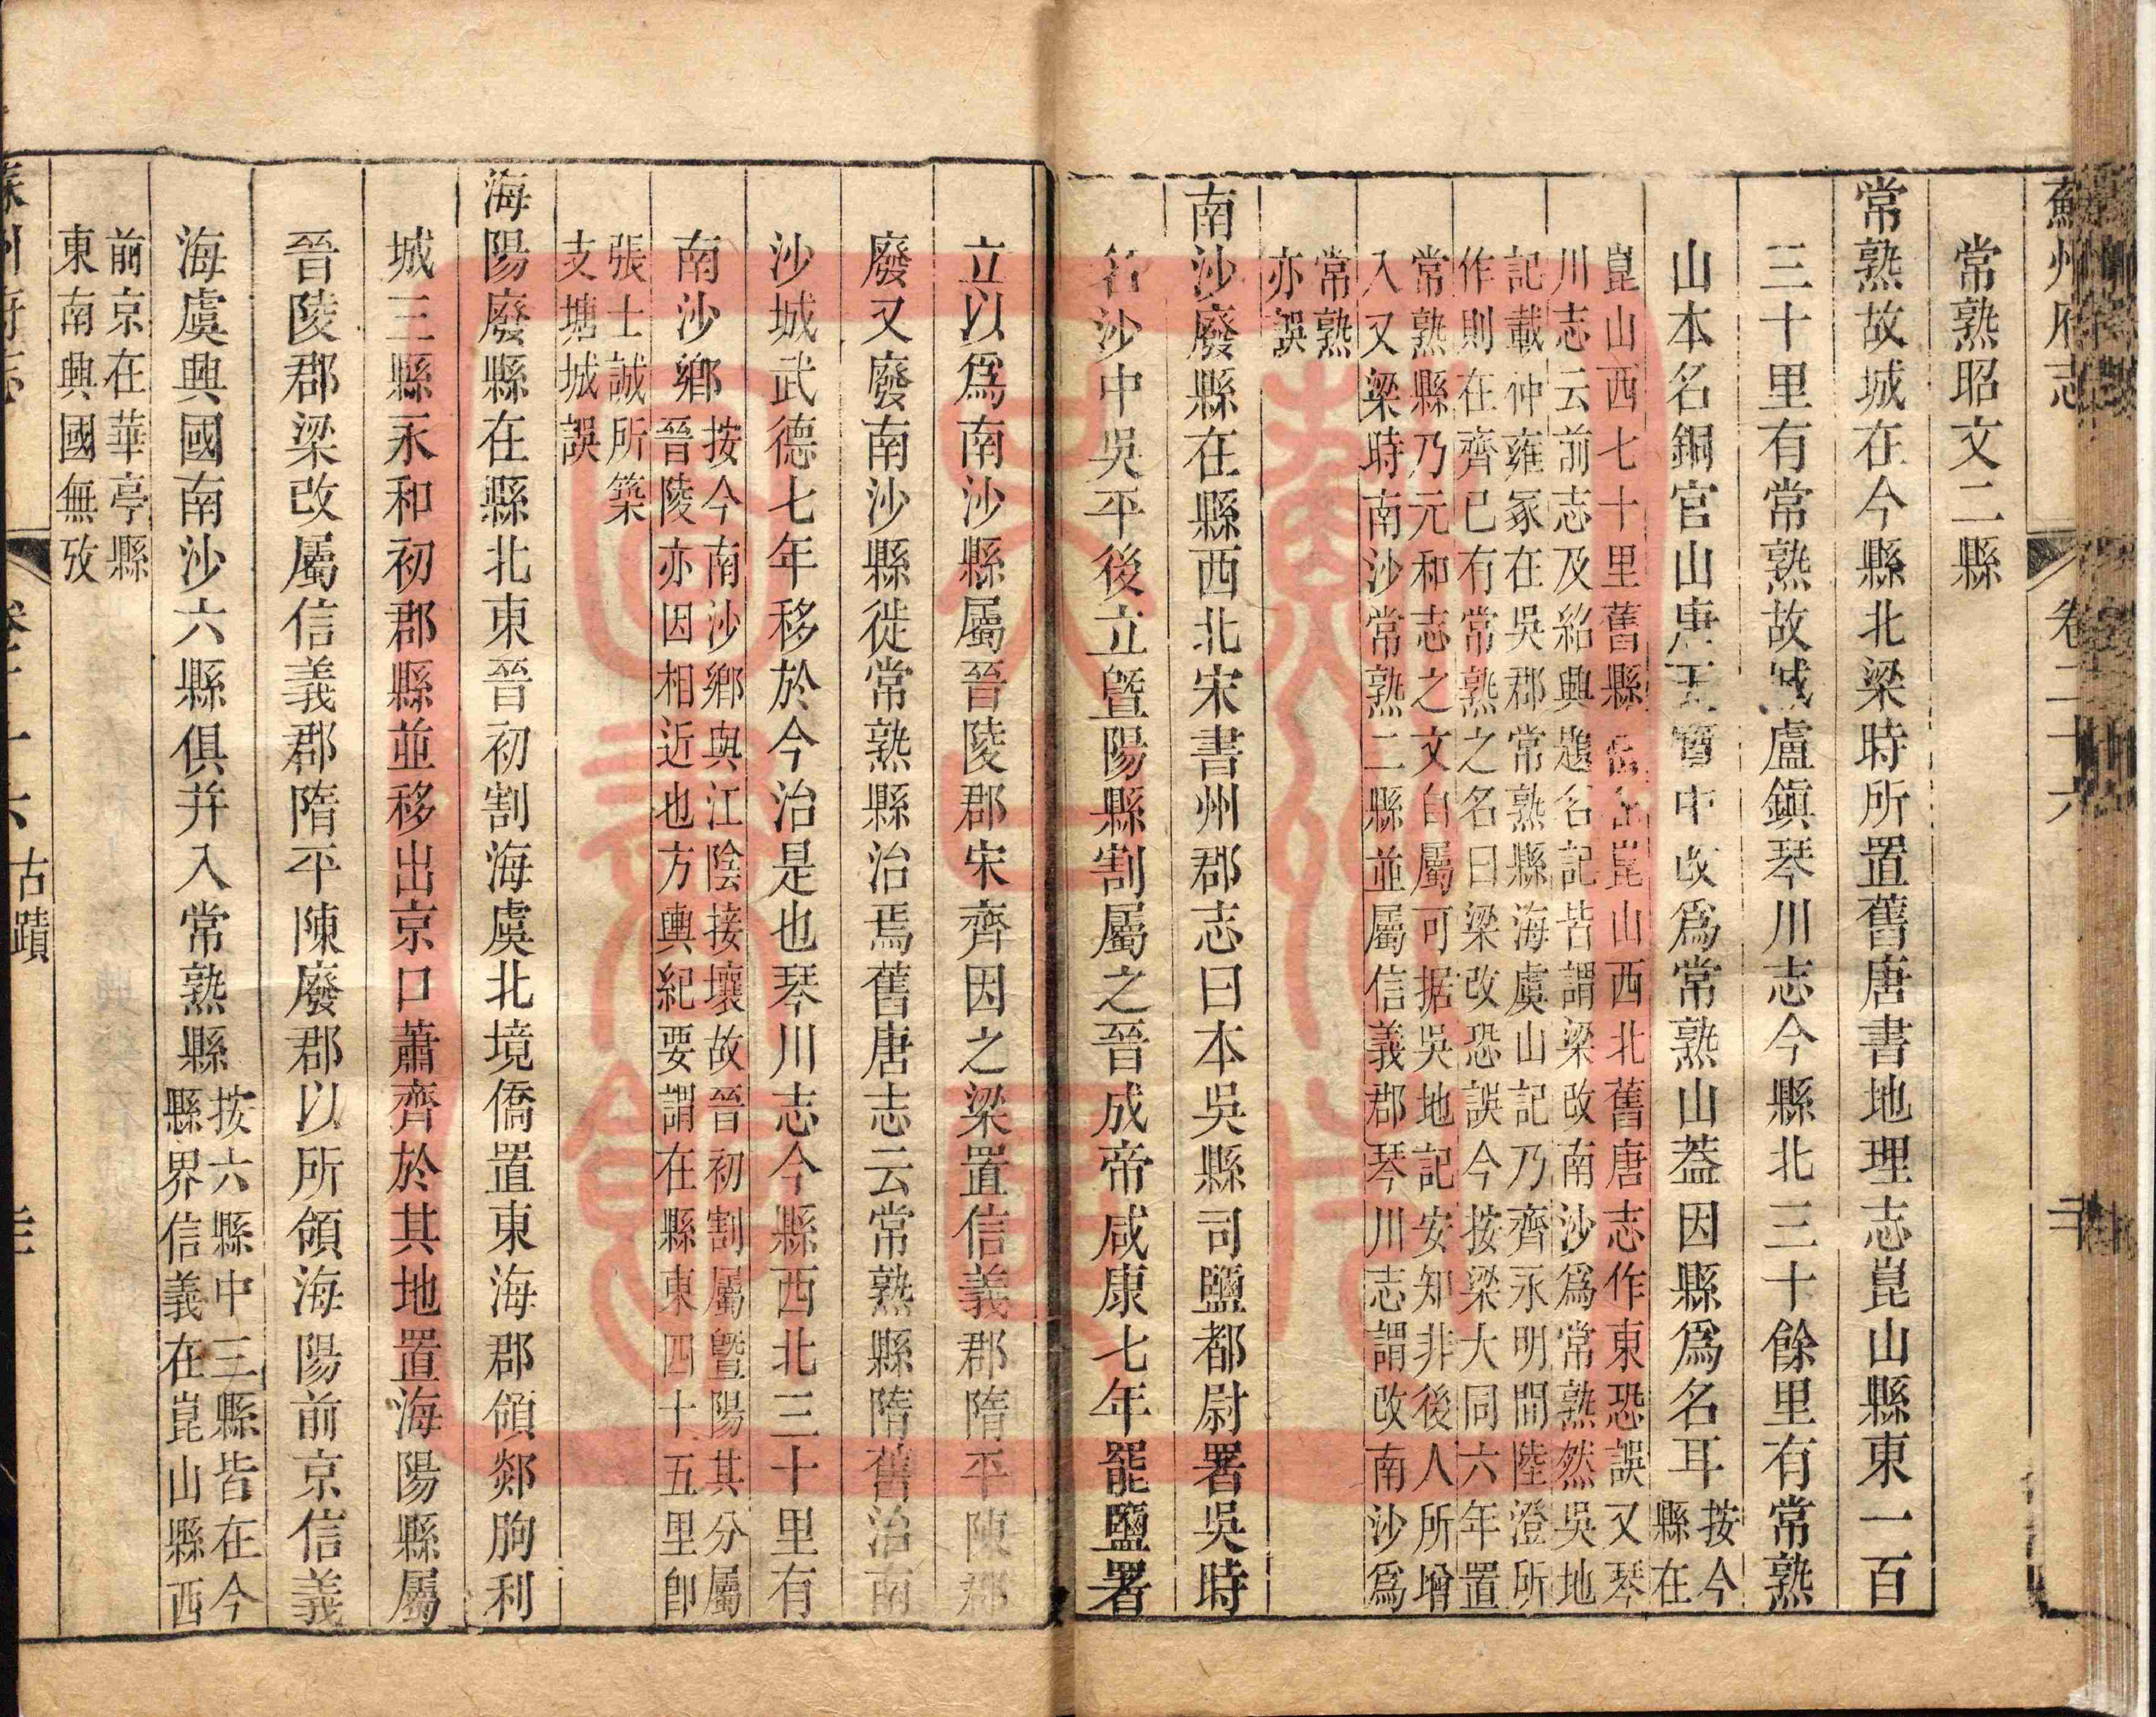 蘇州府志 卷二十六
常熟昭文二縣
常熟故城在今縣北梁時所置舊唐書地理志崑山縣東一百
三十里有常熟故城盧鎮琴川志今縣北三十餘里有常熟
山本名銅官山唐天寶中改爲常熟山蓋因縣爲名耳
按今
縣在
崑山西七十里舊縣志出崑山西北舊唐志作東恐誤又琴
川志云前志及紹興題名記皆謂梁改南沙爲常熟然吳地
記載仲雍冢在吳郡常熟縣海虞山記乃齊永明間陸澄所
作則在齊已有常熟之名曰梁改恐誤今按梁大同六年置
常熟縣乃元和志之文自屬可据吳地記安知非後人所增
入又梁時南沙常熟二縣並屬信義郡琴川志謂改南沙爲
常熟
亦誤
南沙廢縣在縣西北宋書州郡志曰本吳縣司鹽都尉署吳時
名沙中吳平後立暨陽縣割屬之晉成帝咸康七年罷鹽署
立以爲南沙縣屬晉陵郡宋齊因之梁置信義郡隋平陳郡
廢又廢南沙縣徙常熟縣治焉舊唐志云常熟縣隋舊治南
沙城武德七年移於今治是也琴川志今縣西北三十里有
南沙鄉
按今南沙鄉與江陰接壤故晉初割屬暨陽其分屬
晉陵亦因相近也方輿紀要謂在縣東四十五里卽
張士誠所築
支塘城誤
海陽廢縣在縣北東晉初割海虞北境僑置東海郡領郯朐利
城三縣永和初郡縣並移出京口蕭齊於其地置海陽縣屬
晉陵郡梁改屬信義郡隋平陳廢郡以所領海陽前京信義
海虞興國南沙六縣俱并入常熟縣
按六縣中三縣皆在今
縣界信義在崑山縣西
前京在華亭縣
東南興國無攷
古蹟